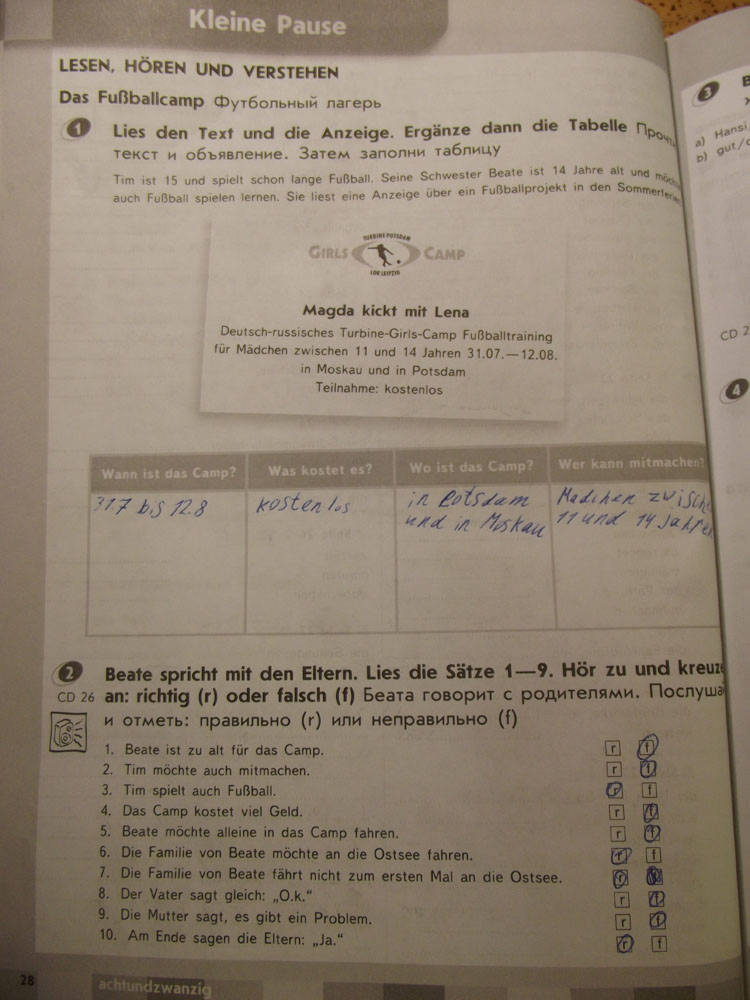 Kleine Pause
LESEN, HÖREN UND VERSTEHEN
Das Fußballcamp Футбольный лагерь
1 Lies den Text und die Anzeige. Ergänze dann die Tabelle
текст и объявление. Затем заполни таблицу
Tim ist 15 und spielt schon lange Fußball. Seine Schwester Beate ist 14 Jahre alt und
auch Fußball spielen lernen. Sie liest eine Anzeige über ein Fußballprojekt in den
TURBINE POTSDAM
GIRLS CAMP
LOK LEIPZIG
Magda kickt mit Lena
Deutsch-russisches Turbine-Girls-Camp Fußballtraining
für Mädchen zwischen 11 und 14 Jahren 31.07.—12.08.
in Moskau und in Potsdam
Teilnahme: kostenlos
Wann ist das Camp? Was kostet es? Wo ist das Camp? Wer kann mitmachen?
31.7 bis 12.8 kostenlos in Potsdam Mädchen
und in Moskau 11 und 14
2 Beate spricht mit den Eltern. Lies die Sätze 1—9. Hör zu und
CD 26 an: richtig (r) oder falsch (f) Беата говорит с родителями.
и отметь: правильно (r) или неправильно (f)
1. Beate ist zu alt für das Camp. r f
2. Tim möchte auch mitmachen. r f
3. Tim spielt auch Fußball. r f
4. Das Camp kostet viel Geld. r f
5. Beate möchte alleine in das Camp fahren. r f
6. Die Familie von Beate möchte an die Ostsee fahren. r f
7. Die Familie von Beate fährt nicht zum ersten Mal an die Ostsee.
8. Der Vater sagt gleich: „O.k.“ r f
9. Die Mutter sagt, es gibt ein Problem. r f
10. Am Ende sagen die Eltern: „Ja.“ r f
28 achtundzwanzig
3
a) Hansi
b) gut/
CD
4